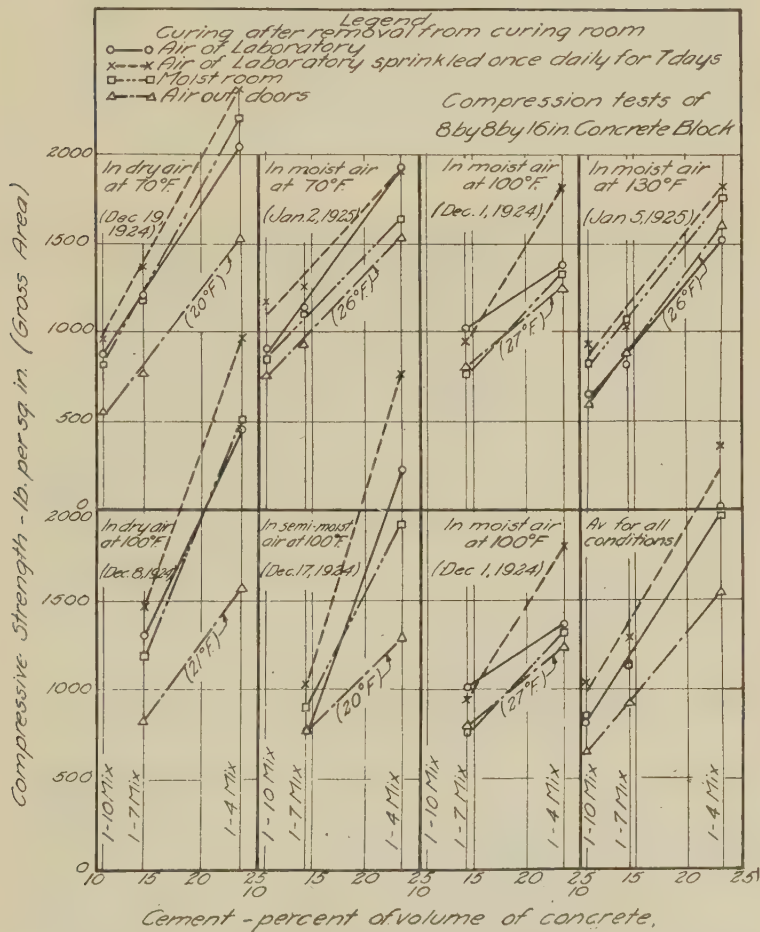 Legend
Curing after removal from curing room
Air of Laboratory
Air of Laboratory sprinkled once daily for 7 days
Moist room
Air out doors
Compression tests of
8 by 8 by 16 in. Concrete Block
Compressive Strength - lb. per sq. in. (Gross Area)
2000
1500
1000
500
0
2000
1500
1000
500
0
In dry air
at 70°F.
(Dec 19,
1924)
(20°F)
In moist air
at 70°F.
(Jan. 2, 1925)
(26°F.)
In moist air
at 100°F
(Dec. 1, 1924)
(27°F)
In moist air
at 130°F
(Jan 5, 1925)
(26°F)
In dry air
at 100°F
(Dec. 8, 1924)
(21°F)
1-10 Mix
1-7 Mix
1-4 Mix
In semi-moist
air at 100°F
(Dec. 17, 1924)
(20°F)
1-10 Mix
1-7 Mix
1-4 Mix
In moist air
at 100°F
(Dec 1, 1924)
(27°F)
1-10 Mix
1-7 Mix
1-4 Mix
Av for all
conditions
1-10 Mix
1-7 Mix
1-4 Mix
10 15 20 25 15 20 25 15 20 25 15 20 25
10 10 10
Cement - percent of volume of concrete.